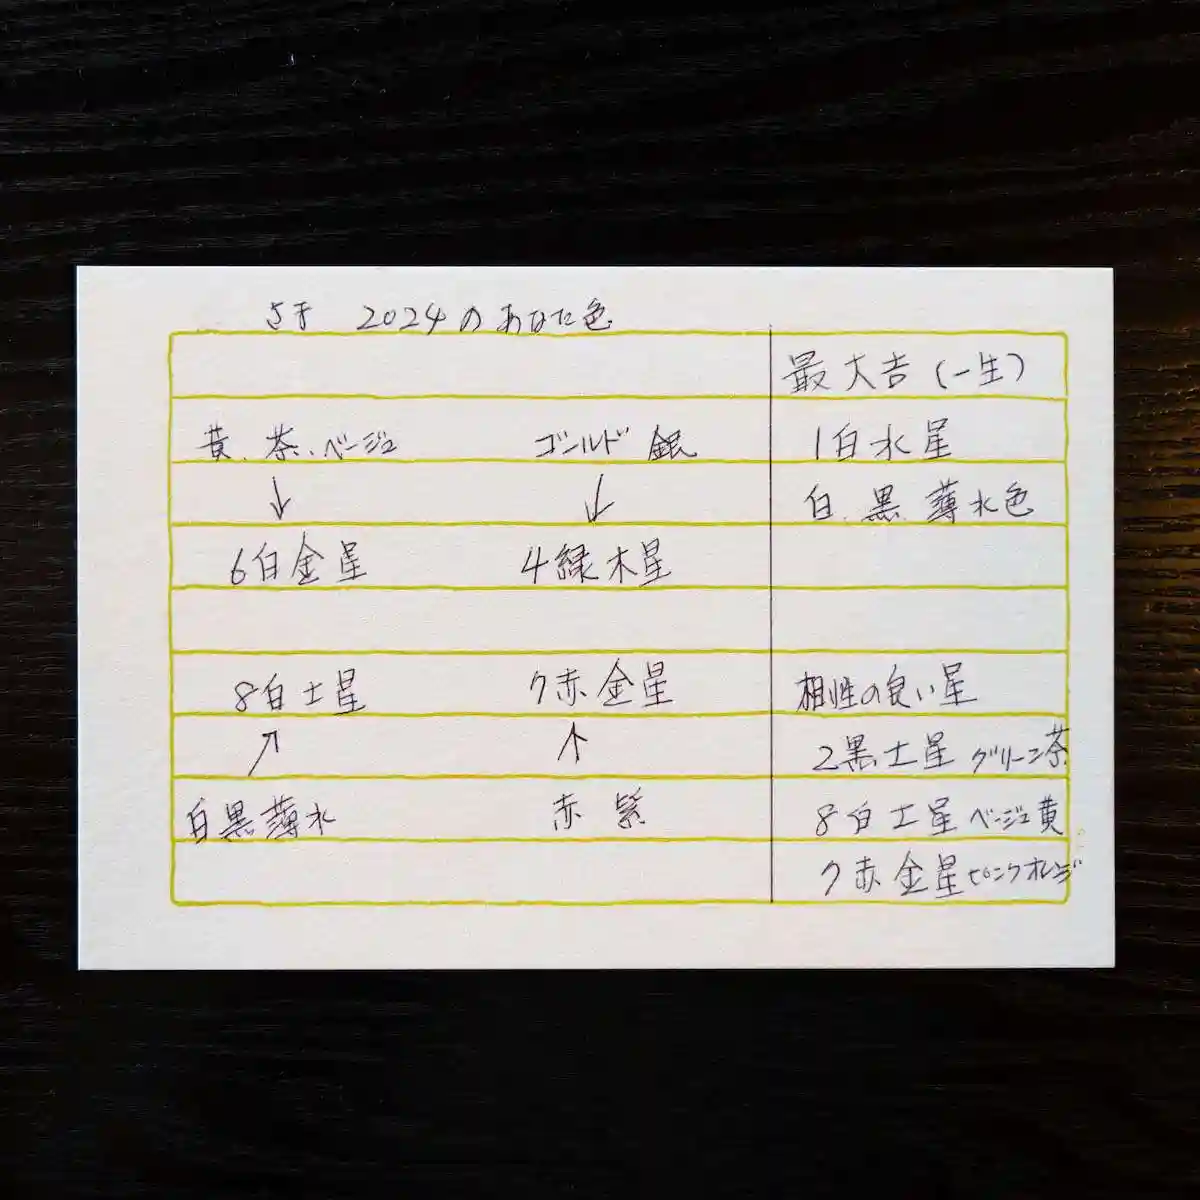 2024のあなた色
最大吉(一生)
黄、茶、ベージュ ゴールド 銀 1白水星
白、黒、薄水色
6白金星 4緑木星
8白土星 7赤金星 相性の良い星
2黒土星 グリーン茶
白黒薄水 赤 紫 8白土星 ベージュ黄
7赤金星 ピンクオレンジ